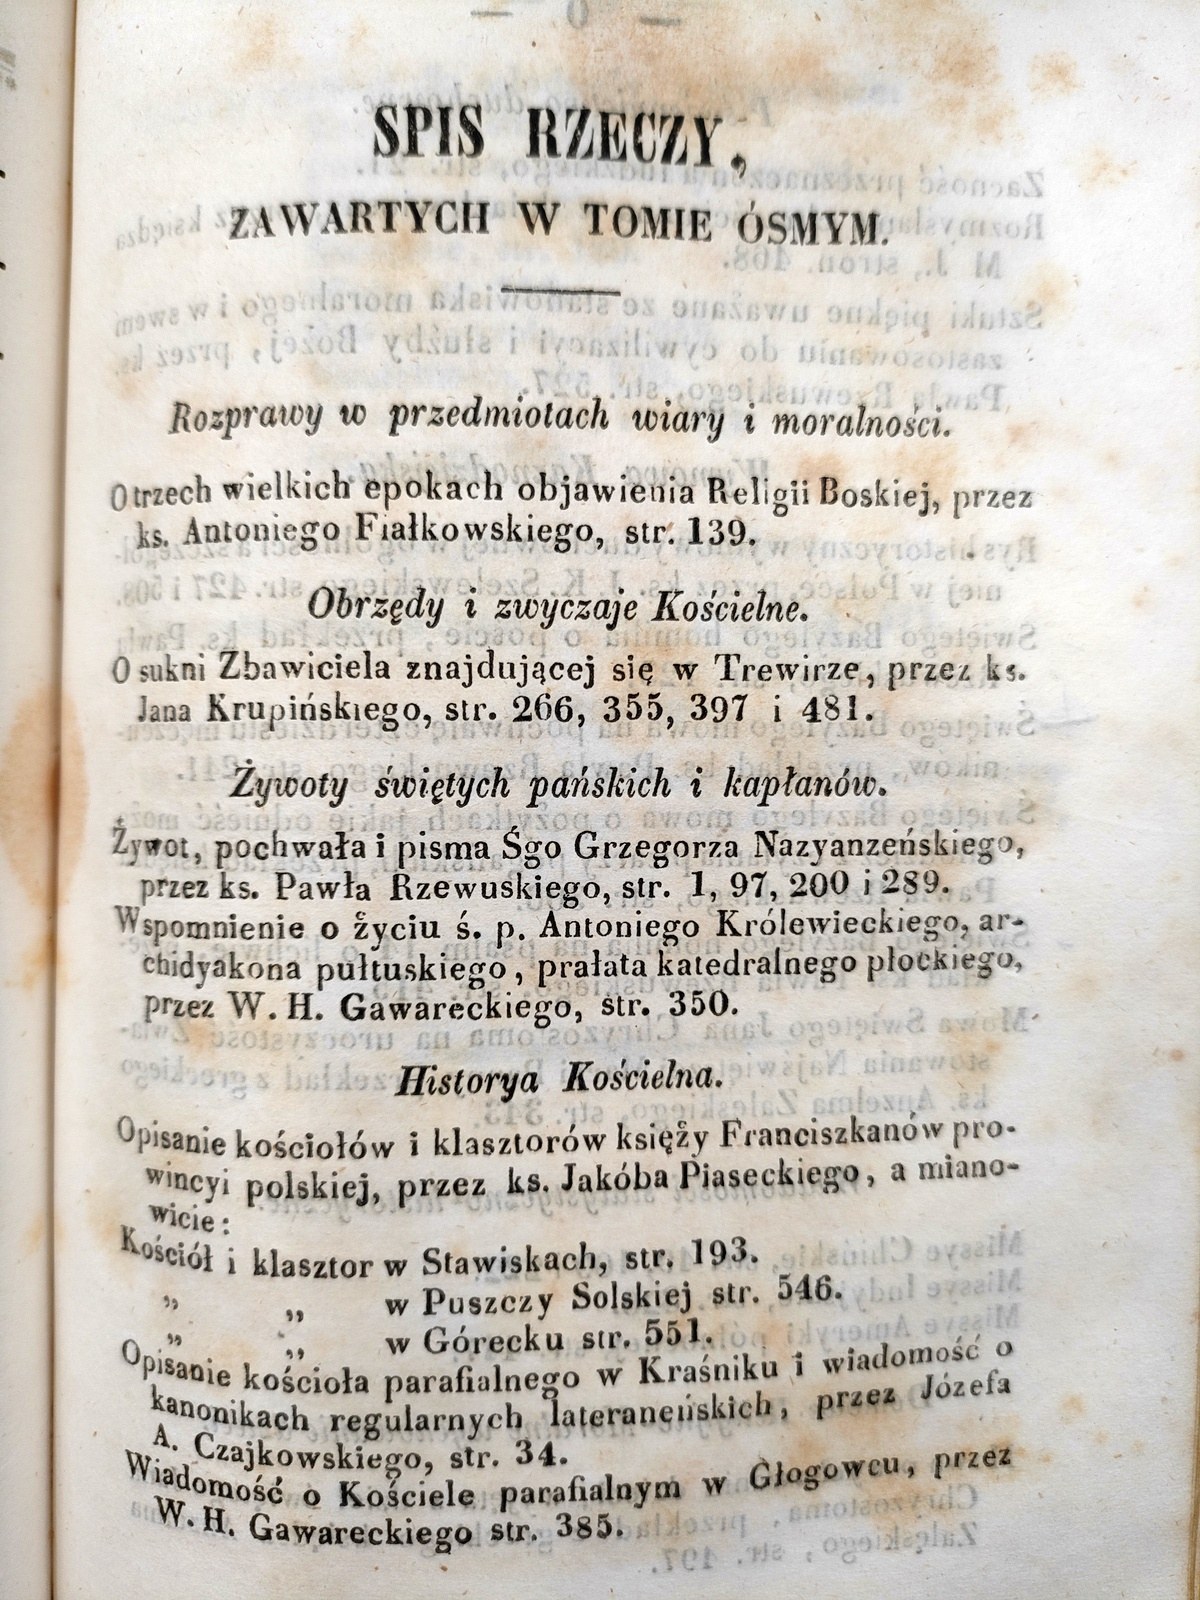 SPIS RZECZY,
ZAWARTYCH W TOMIE ÓSMYM.
Rozprawy w przedmiotach wiary i moralności.
O trzech wielkich epokach objawienia Religii Boskiej, przez
ks. Antoniego Fiałkowskiego, str. 139.
Obrzędy i zwyczaje Kościelne.
O sukni Zbawiciela znajdującej się w Trewirze, przez ks.
Jana Krupińskiego, str. 266, 355, 397 i 481.
Żywoty świętych pańskich i kapłanów.
Żywot, pochwała i pisma Śgo Grzegorza Nazyanzeńskiego,
przez ks. Pawła Rzewuskiego, str. 1, 97, 200 i 289.
Wspomnienie o życiu ś. p. Antoniego Królewieckiego, ar-
chidyakona pułtuskiego, prałata katedralnego płockiego,
przez W. H. Gawareckiego, str. 350.
Historya Kościelna.
Opisanie kościołów i klasztorów księży Franciszkanów pro-
wincyi polskiej, przez ks. Jakóba Piaseckiego, a miano-
wicie:
Kościół i klasztor w Stawiskach, str. 193.
„ „ w Puszczy Solskiej str. 546.
„ „ w Górecku str. 551.
Opisanie kościoła parafialnego w Kraśniku i wiadomość o
kanonikach regularnych lateraneńskich, przez Józefa
A. Czajkowskiego, str. 34.
Wiadomość o Kościele parafialnym w Głogowcu, przez
W. H. Gawareckiego str. 385.